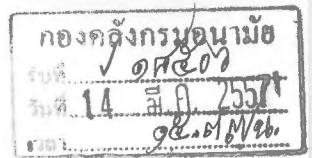 กองคลังกรมอนามัย
รับที่ ๑๙๕๐๖
วันที่ 14 มี.ค. 2557
เวลา ๑๕.๓๗ น.